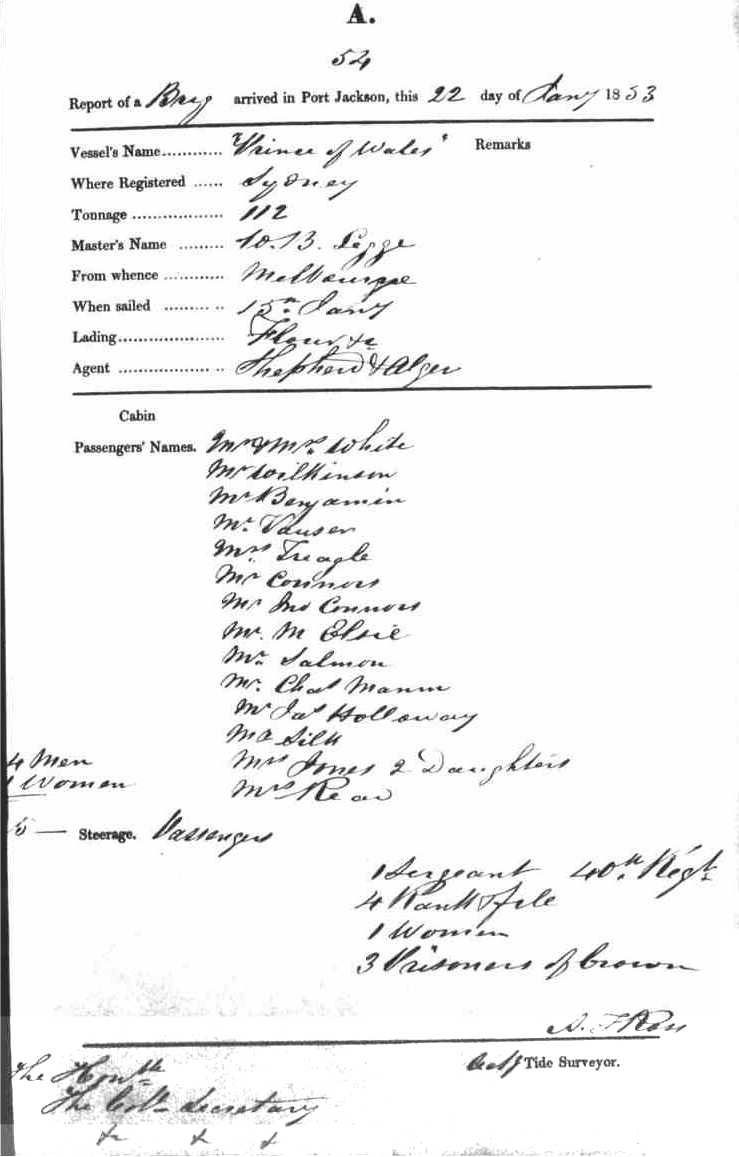 A.
54
Report of a Brig arrived in Port Jackson, this 22 day of Jany 1853
Vessel's Name............ "Prince of Wales" Remarks
Where Registered ...... Sydney
Tonnage .................. 112
Master's Name ......... B. Legge
From whence ............ Melbourne
When sailed ......... .. 15th Jany
Lading...................... Flour &c
Agent .................. .. Shepherd & Alger
Cabin
Passengers' Names. Mr & Mrs. White
Mr Wilkinson
Mr Benjamin
Mr. Vauser
Mrs Treagle
Mr Connors
Mr Jno Connors
Mr. M Elsie
Mr Salmon
Mr. Chas Mannn
Mr Jas Holloway
Mr Silk
4 Men Mrs Jones 2 Daughters
1 Women Mrs Read
5 — Steerage. Passengers
1 Sergeant 40th Regt
4 Rank & file
1 Women
3 Prisoners of Crown
Actg Tide Surveyor.
The Honble
The Coln Secretary
&c &c &c